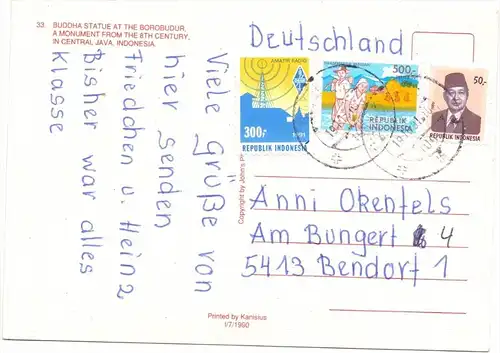 33. BUDDHA STATUE AT THE BOROBUDUR,
A MONUMENT FROM THE 8TH CENTURY,
IN CENTRAL JAVA, INDONESIA.
Viele Grüße von
hier senden
Friedchen u. Heinz
Bisher war alles
Klasse
Deutschland
AMATIR RADIO
300r
1991
REPUBLIK INDONESIA
500.-
REPUBLIK
INDONESIA
50,-
REPUBLIK INDONESIA
Anni Okenfels
Am Bungert 4
5413 Bendorf 1
Copyright by John's
Printed by Kanisius
I/7/1990